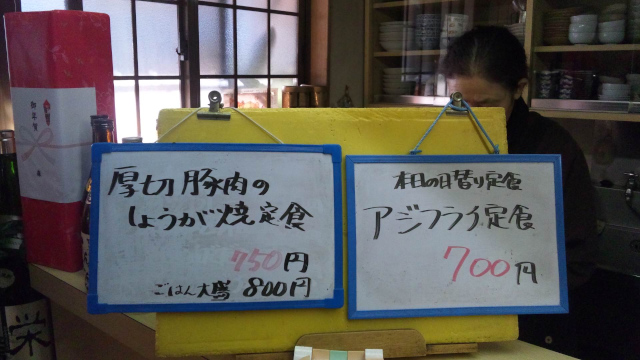 御年賀
厚切豚肉の
しょうが焼定食
750円
ごはん大盛 800円
本日の日替り定食
アジフライ定食
700円
栄